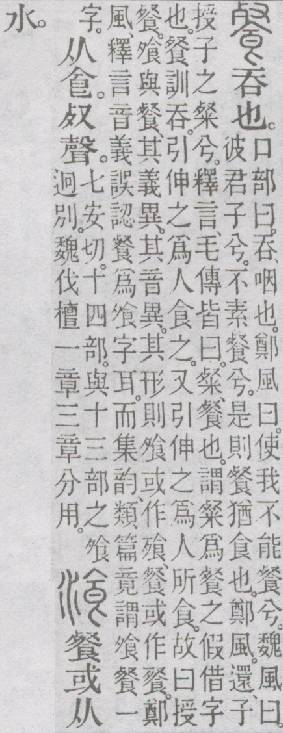 餐吞也。口部曰。吞、咽也。鄭風曰。使我不能餐兮。魏風曰。
彼君子兮。不素餐兮。是則餐猶食也。鄭風。還、予
授子之粲兮。釋言、毛傳皆曰。粲、餐也。謂粲爲餐之假借字
也。餐訓吞。引伸之爲人食之。又引伸之爲人所食。故曰授
餐。飧與餐、其義異、其音異、其形則飧或作飱、餐或作䬸。鄭
風、釋言音義誤認餐爲飧字耳。而集韵、類篇竟謂飧餐一
字。
从食𣦼聲。七安切。十四部。與十三部之飧
迥別。魏伐檀一章三章分用。
湌餐或从
水。